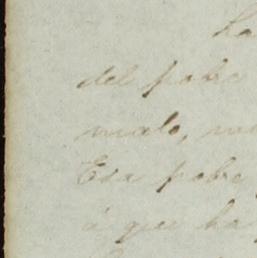 La
del pobre
malo, me
Esa pobre
á que ha